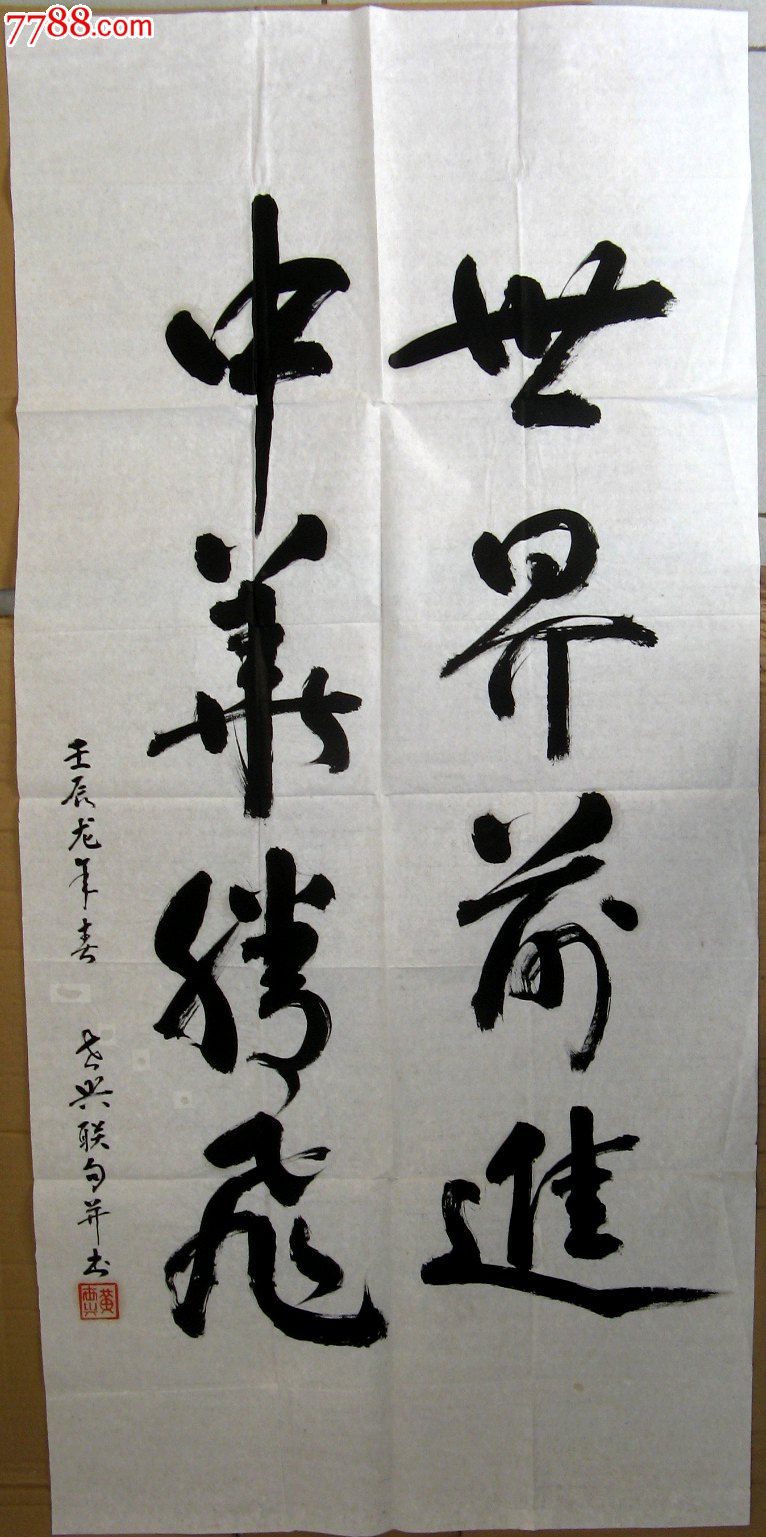 7788.com
世界前進
中華騰飛
壬辰龙年春
联句并书
黄